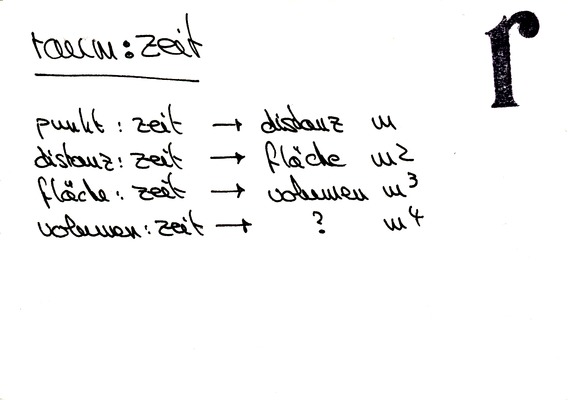 raum:zeit
r
punkt : zeit → distanz m
distanz : zeit → fläche m2
fläche : zeit → volumen m3
volumen : zeit → ? m4